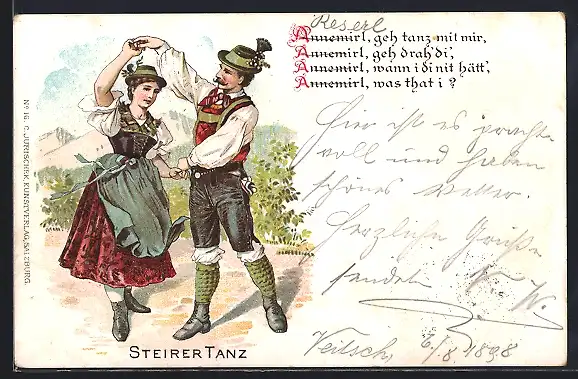 Reserl
Annemirl, geh tanz mit mir,
Annemirl, geh drah' di',
Annemirl, wann i di nit hätt',
Annemirl, was that i?
Hier ist es pracht-
voll und haben
schönes Wetter.
Herzliche Grüße
senden
Veitsch, 6/8 1898
STEIRER TANZ
No 16. C. JURISCHEK, KUNSTVERLAG, SALZBURG.